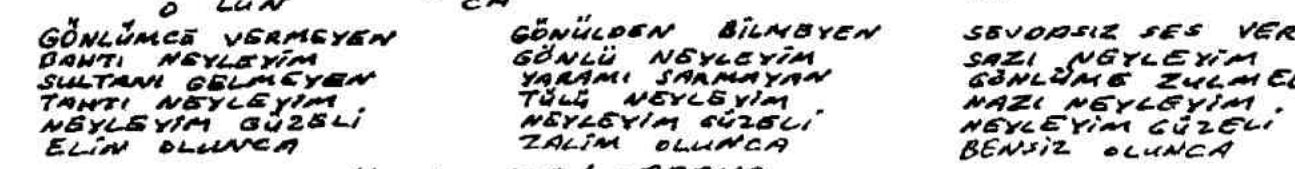 GÖNLÜMCE VERMEYEN
BAHTI NEYLEYİM
SULTANI GELMEYEN
TAHTI NEYLEYİM.
NEYLEYİM GÜZELİ
ELİN OLUNCA
GÖNÜLDEN BİLMEYEN
GÖNLÜ NEYLEYİM
YARAMI SARMAYAN
TÜLÜ NEYLEYİM
NEYLEYİM GÜZELİ
ZALİM OLUNCA
SEVDASIZ SES VER
SAZI NEYLEYİM
GÖNLÜME ZULMED
NAZI NEYLEYİM.
NEYLEYİM GÜZELİ
BENSİZ OLUNCA